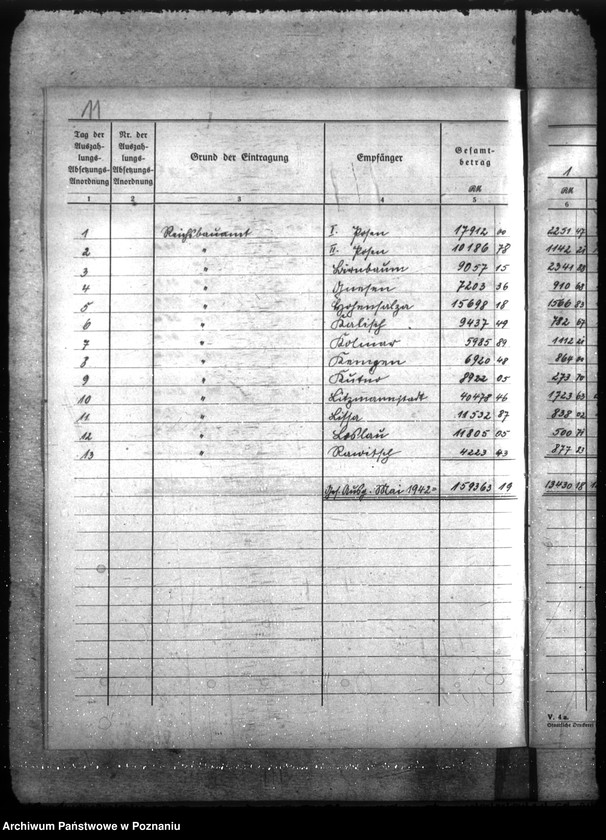 11
Tag der Auszahlungs- Absetzungs- Anordnung | Nr. der Auszahlungs- Absetzungs- Anordnung | Grund der Eintragung | Empfänger | Gesamtbetrag RM | 1 RM
1 | 2 | 3 | 4 | 5 | 6
1 Reichsbauamt I. Posen 17912 00 2251 47
2 " II. Posen 10186 78 1142
3 " Birnbaum 9057 15 2341
4 " Gnesen 7203 36 910
5 " Hohensalza 15698 18 1566 83
6 " Kalisch 9437 49 782 67
7 " Kolmar 5985 89 1112
8 " Kempen 6920 48 864
9 " Kutno 8922 05 273 70
10 " Litzmannstadt 40478 46 1723
11 " Lissa 11532 87 838 02
12 " Leslau 11805 05 500 71
13 " Rawitsch 4223 43 877
Ges. Ausg. Mai 1942 = 159363 19 13430 18
V. 4a.
Archiwum Państwowe w Poznaniu